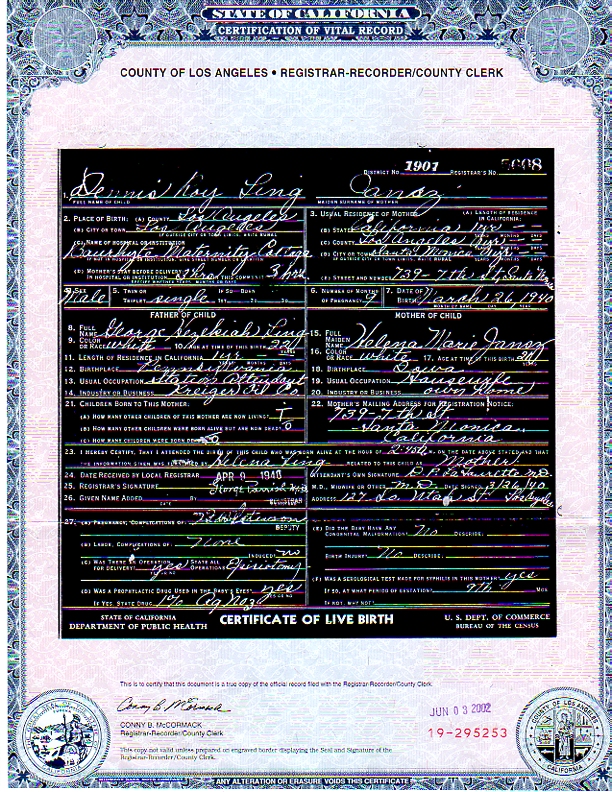 STATE OF CALIFORNIA
CERTIFICATION OF VITAL RECORD
COUNTY OF LOS ANGELES • REGISTRAR-RECORDER/COUNTY CLERK
DISTRICT NO 1901 REGISTRAR'S NO 5608
1. Dennis Roy Ling
FULL NAME OF CHILD MAIDEN SURNAME OF MOTHER
2. PLACE OF BIRTH: (A) COUNTY Los Angeles
(B) CITY OR TOWN Los Angeles
(C) NAME OF HOSPITAL OR INSTITUTION
Maternity Cottage
(D) MOTHER'S STAY BEFORE DELIVERY
3 hrs.
3. USUAL RESIDENCE OF MOTHER (A) LENGTH OF RESIDENCE IN CALIFORNIA
(B) STATE California
(C) COUNTY Los Angeles
(D) CITY OR TOWN Santa Monica
(F) STREET AND NUMBER 739-7th St, Santa Monica
4. SEX Male
5. TWIN OR TRIPLET single
6. NUMBER OF MONTHS OF PREGNANCY 9
7. DATE OF BIRTH March 26, 1940
FATHER OF CHILD
8. FULL NAME George Ling
9. COLOR OR RACE white 10. AGE AT TIME OF THIS BIRTH 22
11. LENGTH OF RESIDENCE IN CALIFORNIA 1 yr
12. BIRTHPLACE Pennsylvania
13. USUAL OCCUPATION Station Attendant
14. INDUSTRY OR BUSINESS Oil Co
MOTHER OF CHILD
15. FULL MAIDEN NAME Helena Marie
16. COLOR OR RACE white 17. AGE AT TIME OF THIS BIRTH 20
18. BIRTHPLACE Iowa
19. USUAL OCCUPATION Housewife
20. INDUSTRY OR BUSINESS own Home
21. CHILDREN BORN TO THIS MOTHER:
(A) HOW MANY OTHER CHILDREN OF THIS MOTHER ARE NOW LIVING?
(B) HOW MANY OTHER CHILDREN WERE BORN ALIVE BUT ARE NOW DEAD? 0
(C) HOW MANY CHILDREN WERE BORN DEAD? 0
22. MOTHER'S MAILING ADDRESS FOR REGISTRATION NOTICE:
739-7th St.
Santa Monica
California
23. I HEREBY CERTIFY, THAT I ATTENDED THE BIRTH OF THIS CHILD WHO WAS BORN ALIVE AT THE HOUR OF 2:45 M. ON THE DATE ABOVE STATED AND THAT
THE INFORMATION GIVEN WAS FURNISHED BY Helena Ling RELATED TO THIS CHILD AS Mother
24. DATE RECEIVED BY LOCAL REGISTRAR APR 9 1940
25. REGISTRAR'S SIGNATURE George Parrish M.D.
26. GIVEN NAME ADDED
DEPUTY
ATTENDANT'S OWN SIGNATURE
M.D., MIDWIFE OR OTHER M.D. DATE SIGNED 3/26/40
ADDRESS 127 So. Utah St. Los Angeles
27. (A) PREGNANCY, COMPLICATIONS OF
(B) LABOR, COMPLICATIONS OF None
INDUCED? no
(C) WAS THERE AN OPERATION FOR DELIVERY? yes STATE ALL OPERATIONS Episiotomy
(D) WAS A PROPHYLACTIC DRUG USED IN THE BABY'S EYES? yes
IF YES, STATE DRUG 1% Ag No3
(E) DID THE BABY HAVE ANY CONGENITAL MALFORMATION? no DESCRIBE:
BIRTH INJURY? no DESCRIBE:
(F) WAS A SEROLOGICAL TEST MADE FOR SYPHILIS IN THIS MOTHER? yes
IF SO, AT WHAT PERIOD OF GESTATION? 9th MON.
IF NOT, WHY NOT?
STATE OF CALIFORNIA
DEPARTMENT OF PUBLIC HEALTH
CERTIFICATE OF LIVE BIRTH
U. S. DEPT. OF COMMERCE
BUREAU OF THE CENSUS
This is to certify that this document is a true copy of the official record filed with the Registrar-Recorder/County Clerk.
Conny B. McCormack
CONNY B. McCORMACK
Registrar-Recorder/County Clerk
JUN 03 2002
19-295253
This copy not valid unless prepared on engraved border displaying the Seal and Signature of the
Registrar-Recorder/County Clerk.
COUNTY OF LOS ANGELES
CALIFORNIA
ANY ALTERATION OR ERASURE VOIDS THIS CERTIFICATE